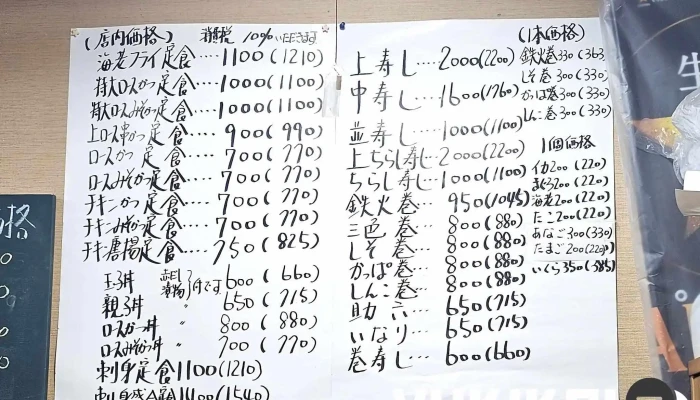 (店内価格) 消費税 10% いただきます
海老フライ定食‥‥1100(1210)
特大ロースかつ定食‥‥1000(1100)
特大ロースみそかつ定食‥‥1000(1100)
上ロース串かつ定食‥‥900(990)
ロースかつ定食‥‥700(770)
ロースみそかつ定食‥‥700(770)
チキンかつ定食‥‥700(770)
チキンみそかつ定食‥‥700(770)
チキン唐揚定食‥‥750(825)
玉子丼 600(660)
親子丼 〃 650(715)
ロースかつ丼 〃 800(880)
ロースみそかつ丼 〃 700(770)
刺身定食 1100(1210)
1400(1540)
上寿し‥‥2000(2200)
中寿し‥‥1600(1760)
並寿し‥‥1000(1100)
上ちらし寿し‥2000(2200)
ちらし寿し‥1000(1100)
鉄火巻‥‥950(1045)
三色巻‥‥800(880)
しそ巻‥‥800(880)
かっぱ巻‥‥800(880)
しんこ巻‥‥800(880)
助六‥‥650(715)
いなり‥‥650(715)
巻寿し‥‥600(660)
(1本価格)
鉄火巻 330(363
しそ巻 300(330)
かっぱ巻 300(330)
しんこ巻 300(330)
1個価格
イカ 200(220)
まぐろ 200(220)
海老 200(220)
たこ 200(220)
あなご 300(330)
たまご 200(220)
いくら 350(385)
格
生